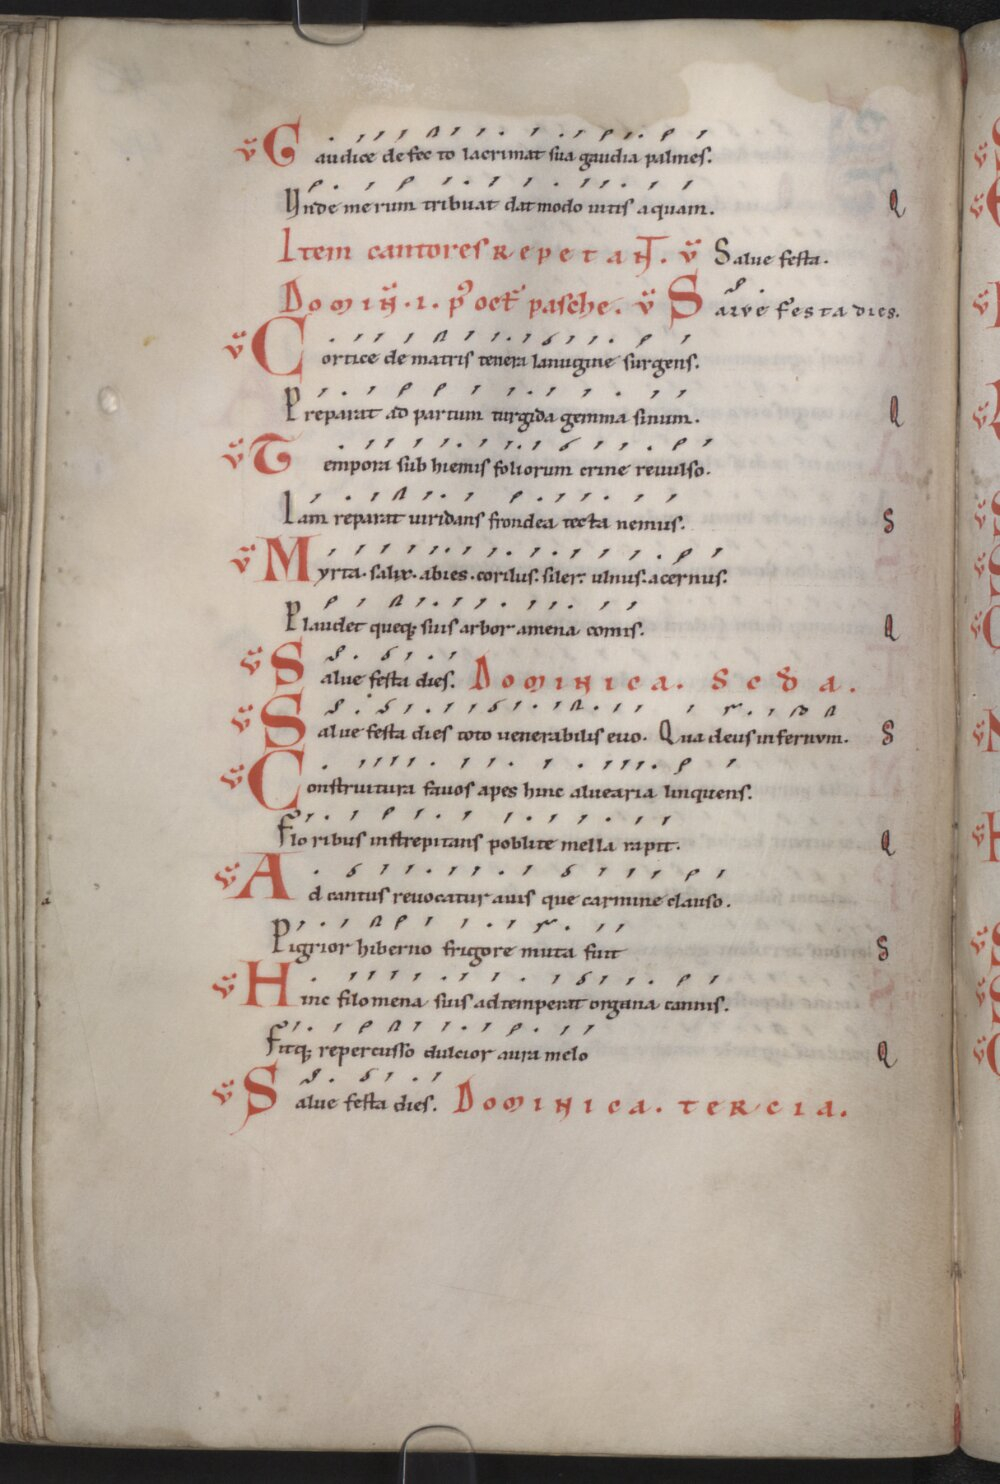 v̈ Caudice defecto lacrimat sua gaudia palmes.
Unde merum tribuat dat modo uitis aquam. Q
Item cantores repetant. v̈ Salue festa.
Domin̄. i. p᷒ oct̄ pasche. v̈ Salve festa dies.
v̈ Cortice de matris tenera lanugine surgens.
Preparat ad partum turgida gemma sinum. Q
v̈ Tempora sub hiemis foliorum crine reuulso.
Iam reparat uiridans frondea tecta nemus. S
v̈ Myrta. salix. abies. corilus. siler. ulnus. acernus.
Plaudet queq; suis arbor amena comis. Q
v̈ Salue festa dies. Dominica. Scđa.
v̈ Salue festa dies toto uenerabilis euo. Qua deus infernvm. S
v̈ Construitura fauos apes hinc aluearia linquens.
Floribus instrepitans poblite mella rapit. Q
v̈ Ad cantus reuocatur auis que carmine clauso.
Pigrior hiberno frigore muta fuit S
v̈ Hinc filomena suis adtemperat organa cannis.
Fitq; repercusso dulcior aura melo Q
v̈ Salue festa dies. Dominica. tercia.